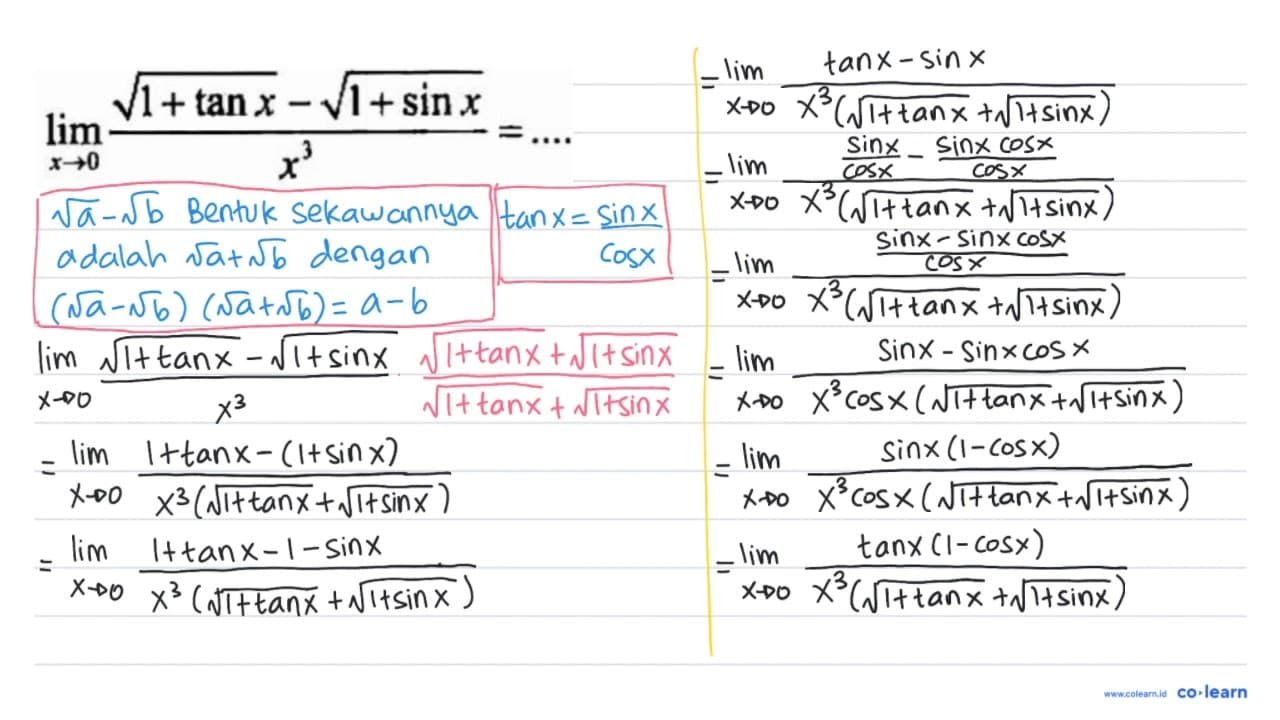 lim x→0 (√(1 + tan x) − √(1 + sin x)) / x³ = ....
√a - √b Bentuk sekawannya
adalah √a + √b dengan
(√a - √b) (√a + √b) = a - b
tan x = sin x / cos x
lim x→0 (√(1+tanx) - √(1+sinx)) / x³ · (√(1+tanx) + √(1+sinx)) / (√(1+tanx) + √(1+sinx))
= lim x→0 (1+tanx - (1+sinx)) / (x³(√(1+tanx) + √(1+sinx)))
= lim x→0 (1+tanx - 1 - sinx) / (x³(√(1+tanx) + √(1+sinx)))
= lim x→0 (tanx - sinx) / (x³(√(1+tanx) + √(1+sinx)))
= lim x→0 (sinx/cosx - sinx cosx/cosx) / (x³(√(1+tanx) + √(1+sinx)))
= lim x→0 ((sinx - sinx cosx)/cosx) / (x³(√(1+tanx) + √(1+sinx)))
= lim x→0 (sinx - sinx cosx) / (x³ cosx (√(1+tanx) + √(1+sinx)))
= lim x→0 (sinx (1-cosx)) / (x³ cosx (√(1+tanx) + √(1+sinx)))
= lim x→0 (tanx (1-cosx)) / (x³(√(1+tanx) + √(1+sinx)))
www.colearn.id co·learn